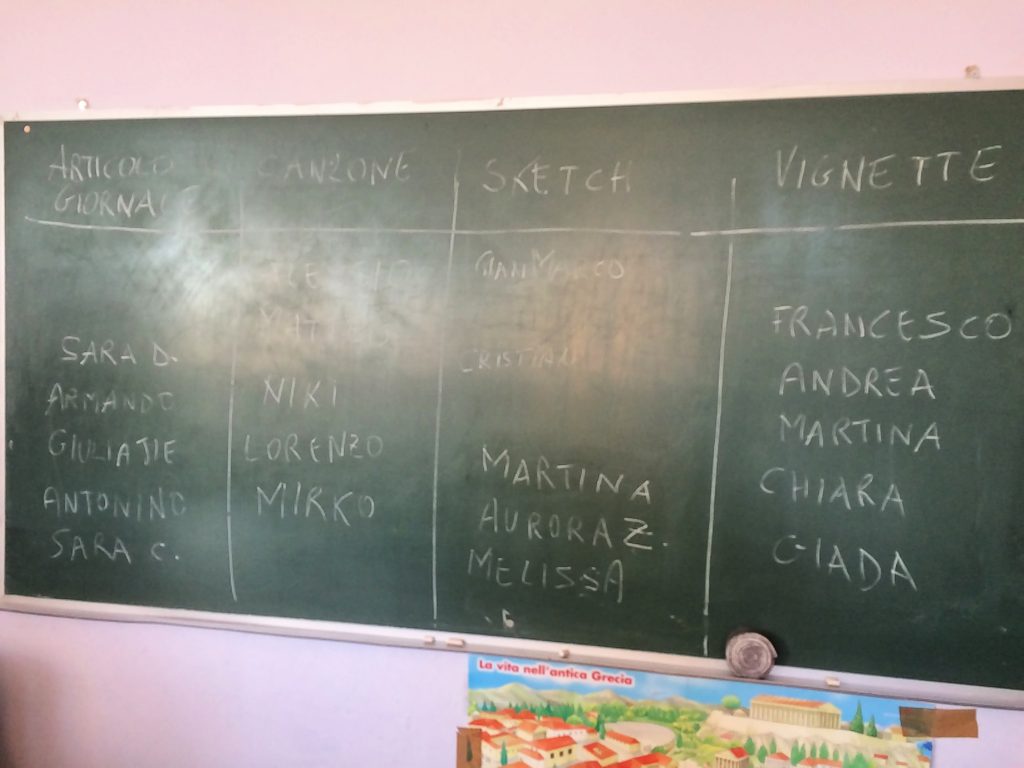 ARTICOLO
GIORNAL
CANZONE
SKETCH
VIGNETTE
SARA D.
ARMANDO
ANTONINO
SARA C.
NIKI
LORENZO
MIRKO
GIANMARCO
CRISTIAN
MARTINA
AURORA Z.
MELISSA
FRANCESCO
ANDREA
MARTINA
CHIARA
GIADA
La vita nell'antica Grecia